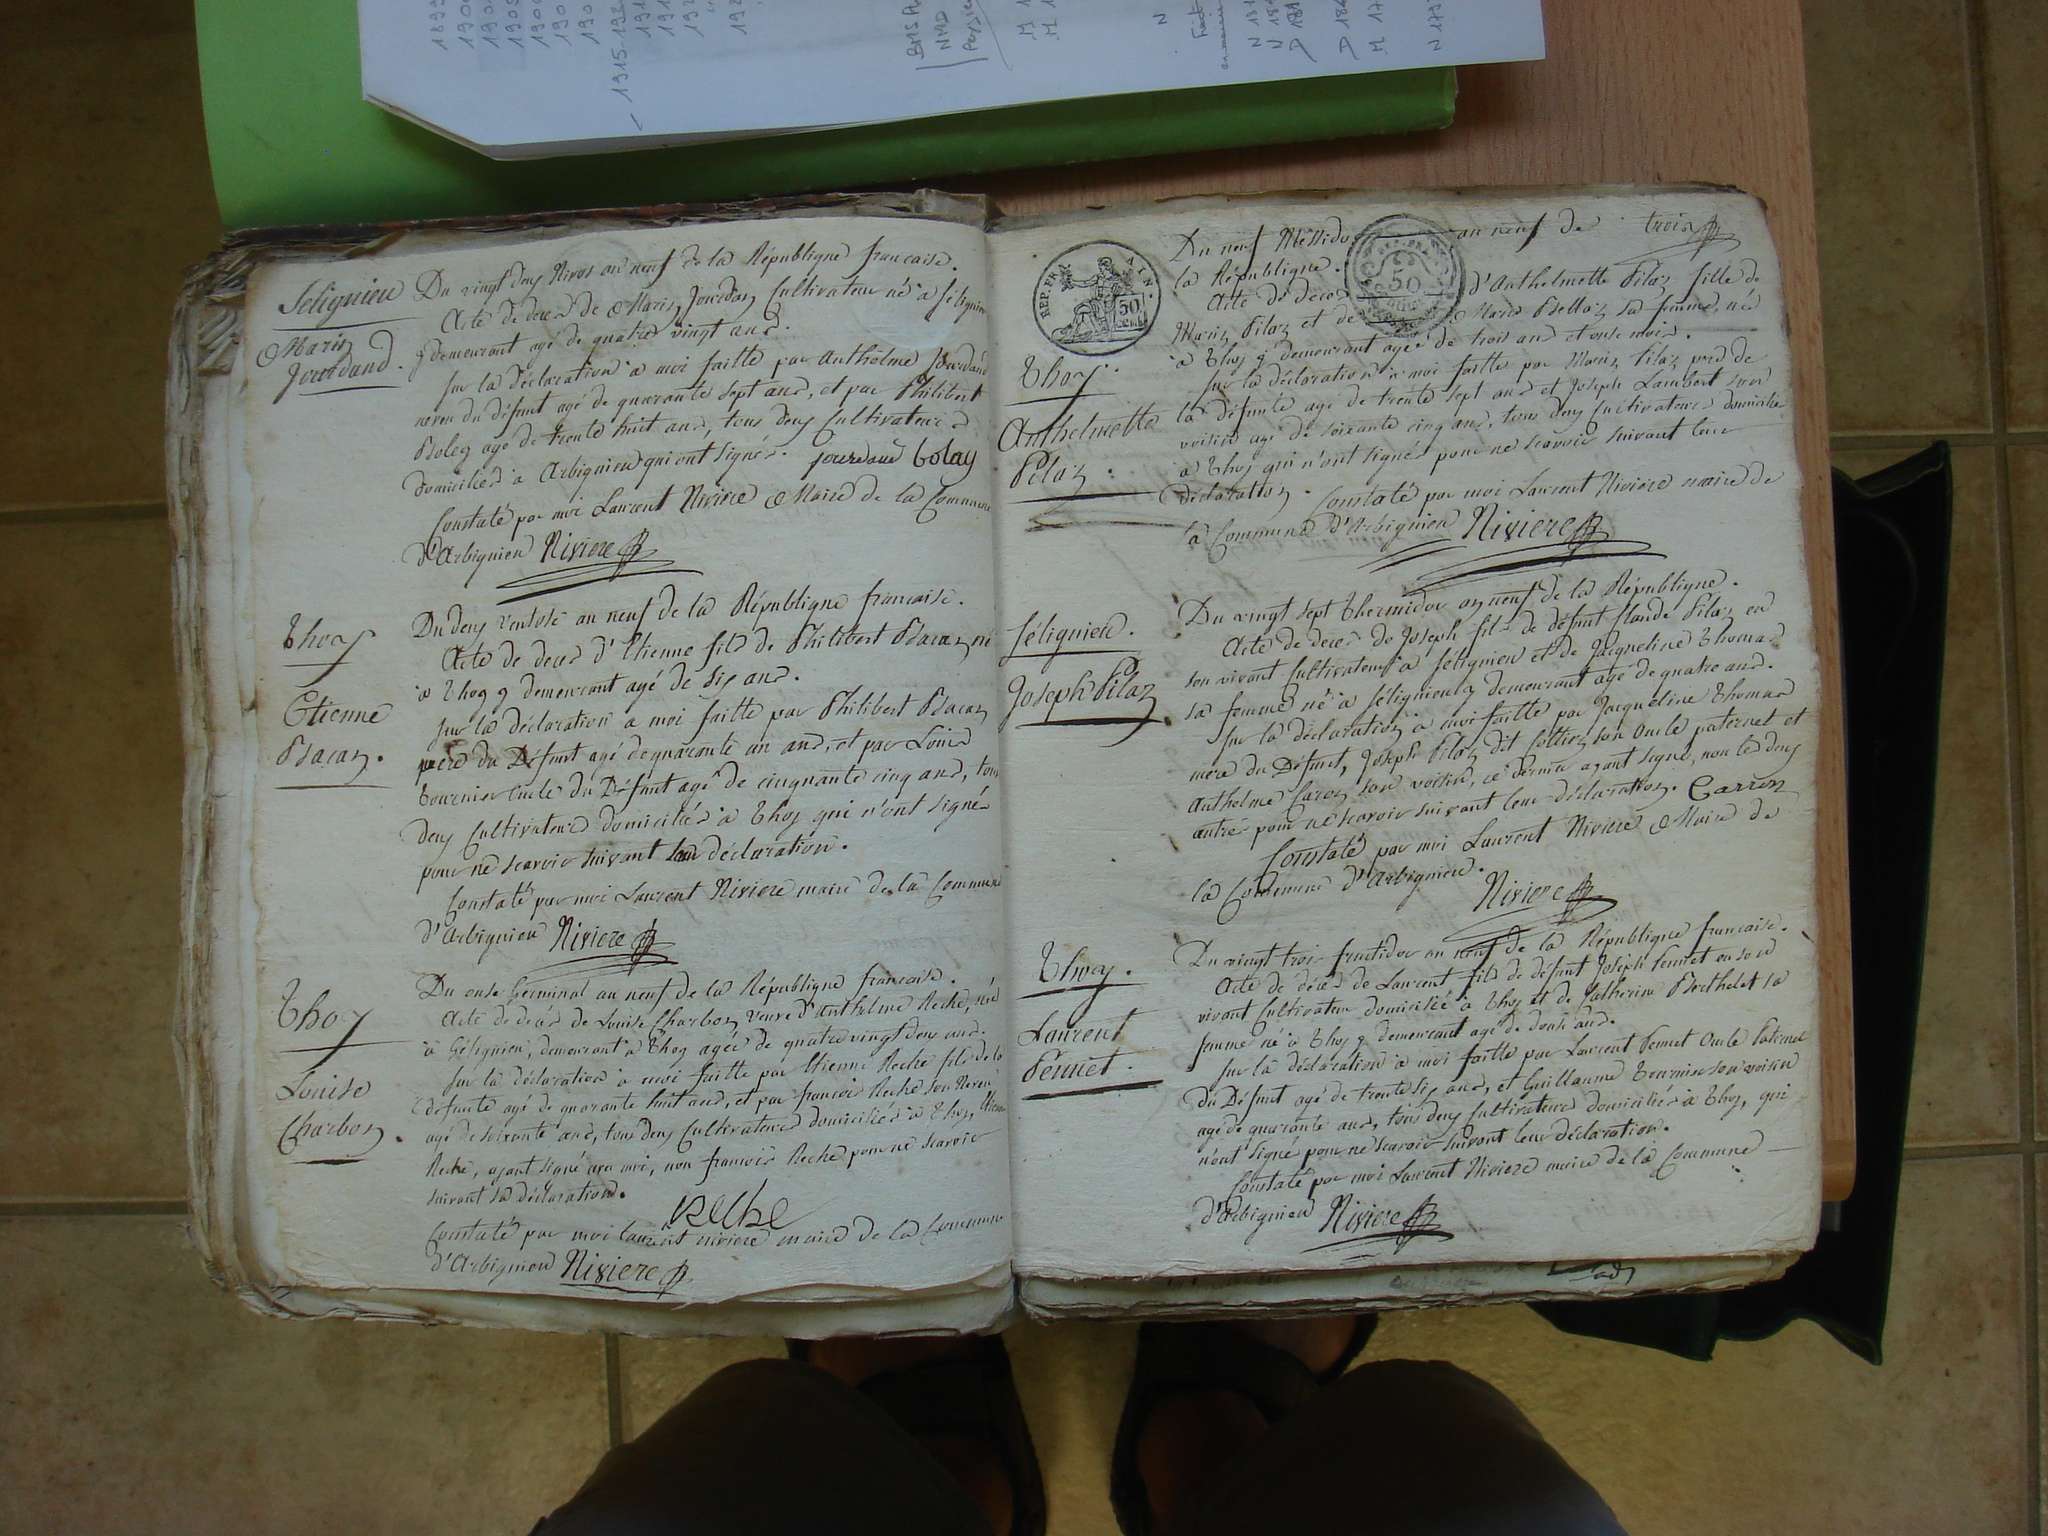 Selignieu
Marin
Jourdand.
Du vingt deux Nivos an neuf de la République francaise.
Acte de deces de Marin Jourdan Cultivateur né a Sélignieu
y demeurant agé de quatre vingt ans.
sur la déclaration a moi faitte par Anthelme Jourdand
neveu du défunt agé de quarante sept ans, et par Philibert
Boley agé de trente huit ans, tous deux Cultivateurs
domiciliés a Arbignieu qui ont signés. jourdand bolay
Constaté par moi Laurent Riviere Maire de la Commune
d'Arbignieu Riviere
Thoy
Etienne
Bacaz.
Du deux ventose an neuf de la République francaise.
Acte de deces d'Etienne fils de Philibert Bacaz né
a Thoy y demeurant agé de six ans.
sur la déclaration a moi faitte par Philibert Bacaz
pere du Défunt agé de quarante un ans, et par Louis
Tournier oncle du Défunt agé de cinquante cinq ans, tous
deux Cultivateurs domiciliés a Thoy qui n'ont signé
pour ne scavoir suivant leur déclaration.
Constaté par moi Laurent Riviere maire de la Commune
d'Arbignieu Riviere
Thoy
Louise
Charbon.
Du onse Germinal an neuf de la République francaise.
Acte de deces de Louise Charbon veuve d'Anthelme Reche, née
a Sélignieu, demeurant a Thoy agée de quatre vingt deux ans.
sur la déclaration a moi faitte par Etienne Reche fils de la
défunte agé de quarante huit ans, et par francois Reche son Neveu
agé de soixante ans, tous deux Cultivateurs domiciliés a Thoy, Etienne
Reche, ayant signé avec moi, non francois Reche pour ne scavoir
suivant sa déclaration.
Reche
Constaté par moi Laurent Riviere maire de la Commune
d'Arbignieu Riviere
REP. FRA. 50 cent.
AIN.
50
Thoy.
Anthelmette
Pilaz.
Du neuf Messidor an neuf de trois
la République.
Acte de deces d'Anthelmette Pilaz fille de
Marin Pilaz et de Marie sa femme, née
a Thoy y demeurant agée de trois ans et onse mois.
sur la déclaration a moi faitte par Marin Pilaz pere de
la défunte agé de trente sept ans et Joseph Lambert son
voisin agé de soixante cinq ans, tous deux Cultivateurs domiciliés
a Thoy qui n'ont signés pour ne scavoir suivant leur
déclaration. Constaté par moi Laurent Riviere maire de
la Commune d'Arbignieu Riviere
Sélignieu.
Joseph Pilaz
Du vingt sept Thermidor an neuf de la République.
Acte de deces de Joseph fils de défunt Claude Pilaz en
son vivant Cultivateur a Sélignieu et de Jacqueline Thomas
sa femme né a Sélignieu y demeurant agé de quatre ans.
sur la déclaration a moi faitte par Jacqueline Thomas
mere du Défunt, Joseph Pilaz dit son Oncle paternel et
Anthelme Caroz son voisin, ce dernier ayant signé, non les deux
autres pour ne scavoir suivant leur déclaration. Carroz
Constaté par moi Laurent Riviere Maire de
la Commune d'Arbignieu.
Riviere
Thoy.
Laurent
Peunet.
Du vingt trois fructidor an neuf de la République francaise.
Acte de deces de Laurent fils de défunt Joseph Peunet en son
vivant Cultivateur domicilié a Thoy et de Catherine Berthelet sa
femme né a Thoy y demeurant agé de douse ans.
sur la déclaration a moi faitte par Laurent Peunet Oncle Paternel
du Défunt agé de trente six ans, et Guillaume Tournier son voisin
agé de quarante ans, tous deux Cultivateurs domiciliés a Thoy, qui
n'ont signé pour ne scavoir suivant leur déclaration.
Constaté par moi Laurent Riviere maire de la Commune
d'Arbignieu Riviere
1915-192
BMS
NMD